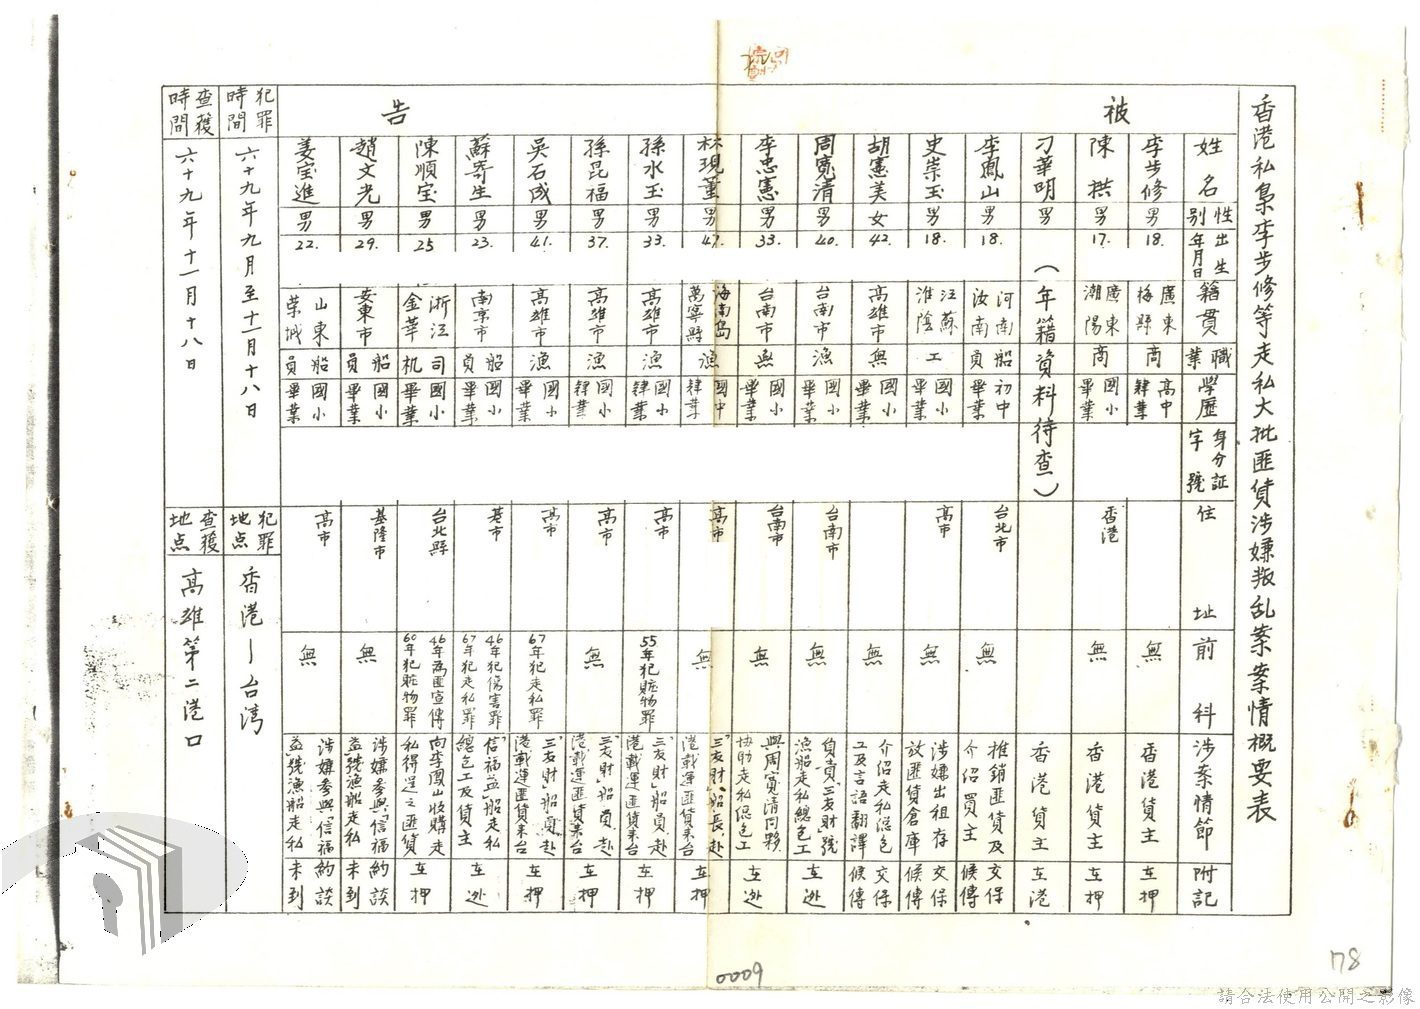 香港私梟李步修等走私大批匪貨涉嫌叛乱案案情概要表
被告
姓名 性別 出生年月日 籍貫 職業 學歷 身分証字號 住址 前科 涉案情節 附記
李步修 男 18. 廣東梅縣 商 高中肄業 無 香港貨主 在押
陳拱 男 17. 廣東潮陽 商 國小畢業 香港 無 香港貨主 在押
刁華明 男 (年籍資料待查) 香港貨主 在港
李鳳山 男 18. 河南汝南 船員 初中畢業 台北市 無 推銷匪貨及介紹買主 交保候傳
史崇玉 男 18. 江蘇淮陰 工 國小畢業 高市 無 涉嫌出租存放匪貨倉庫 交保候傳
胡憲美 女 42. 高雄市 無 國小畢業 無 介紹走私總包工及言語翻譯 交保候傳
周寬清 男 40. 台南市 漁 國小畢業 台南市 無 負責「三友財」號漁船走私總包工 在逃
李忠憲 男 33. 台南市 無 國小畢業 台南市 無 與周寬清同夥協助走私總包工 在逃
林現董 男 47. 海南島萬寧縣 漁 國中肄業 高市 無 「三友財」船長,赴港載運匪貨來台 在押
孫水玉 男 33. 高雄市 漁 國小肄業 高市 55年犯賍物罪 「三友財」船員,赴港載運匪貨來台 在押
孫昆福 男 37. 高雄市 漁 國小肄業 高市 無 「三友財」船員,赴港載運匪貨來台 在押
吳石成 男 41. 高雄市 漁 國小畢業 高市 67年犯走私罪 「三友財」船員,赴港載運匪貨來台 在押
蘇寄生 男 23. 南京市 船員 國小畢業 基市 46年犯傷害罪 67年犯走私罪 「信福益」船走私總包工及貨主 在逃
陳順宝 男 25 浙江金華 司机 國小畢業 台北縣 46年為匪宣傳 60年犯賍物罪 向李鳳山收購走私得逞之匪貨 在押
趙文光 男 29. 安東市 船員 國小畢業 基隆市 無 涉嫌參與「信福益」號漁船走私 約談未到
姜宝進 男 22. 山東榮城 船員 國小畢業 高市 無 涉嫌參與「信福益」號漁船走私 約談未到
犯罪時間 六十九年九月至十一月十八日 犯罪地点 香港—台灣
查獲時間 六十九年十一月十八日 查獲地点 高雄第二港口
0009
178
請合法使用公開之影像